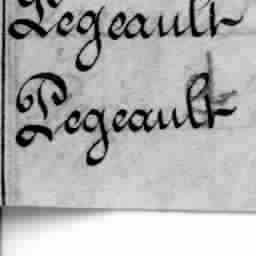 Pegeault
Pegeault